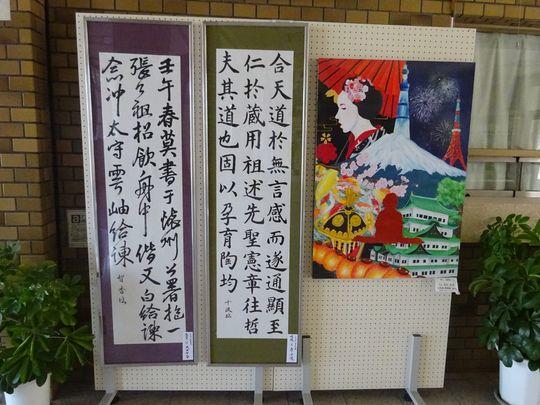 合天道於無言感而遂通顯至
仁於蔵用祖述先聖憲章往哲
夫其道也固以孕育陶均
壬午春莫書于懐州公署抱一
張公祖招飲舟中偕又白給諫
念冲太守雲岫給諫